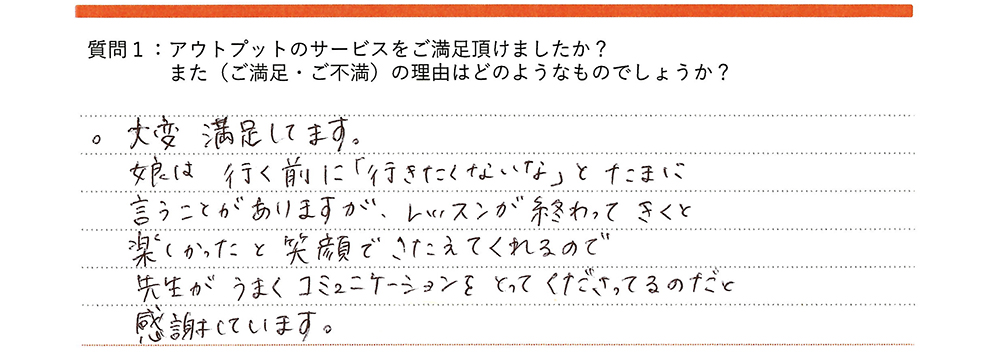 質問1：アウトプットのサービスをご満足頂けましたか？
また（ご満足・ご不満）の理由はどのようなものでしょうか？
。大変 満足してます。
娘は 行く前に「行きたくないな」と たまに
言うことがありますが、レッスンが 終わって きくと
楽しかったと 笑顔で きたえてくれるので
先生が うまく コミュニケーションを とってくださってるのだと
感謝しています。